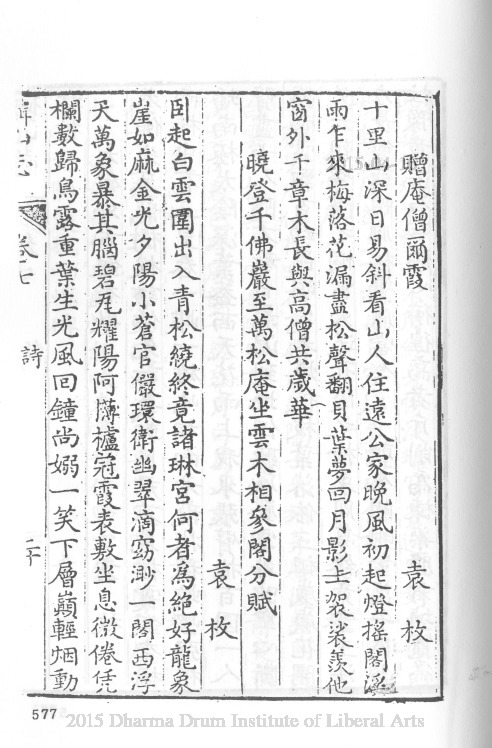 贈庵僧爾霞
袁枚
十里山深日易斜看山人住遠公家晚風初起燈搖閣溪
雨乍來梅落花漏盡松聲翻貝葉夢回月影上袈裟羨他
窗外千章木長與高僧共歲華
曉登千佛巖至萬松庵坐雲木相參閣分賦
袁枚
卧起白雲圍出入青松繞終竟諸琳宮何者爲絕好龍象
崖如麻金光夕陽小蒼官儼環衛幽翠滴窈渺一閣西浮
天萬象暴其腦碧瓦耀陽阿薄櫨冠霞表敷坐息微倦凭
欄數歸鳥露重葉生光風回鐘尚嫋一笑下層巔輕烟動
卷七
詩
二十
577
2015 Dharma Drum Institute of Liberal Arts